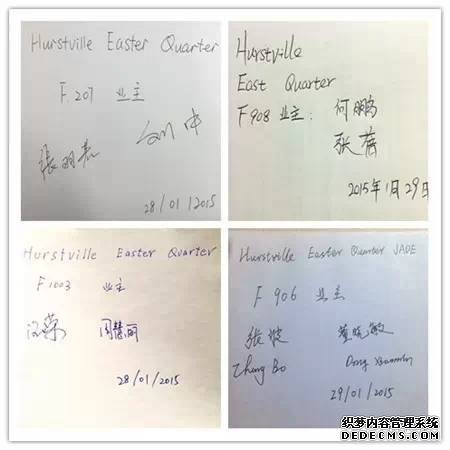 Hurstville Easter Quarter
F 207 业主
张明
28/01/2015
Hurstville
East Quarter
F908 业主: 何鹏
张蓓
2015年1月29日
Hurstville Easter Quarter
F1003 业主
周慧丽
28/01/2015
Hurstville Easter Quarter JADE
F 906 业主
张波 黄晓敏
Zhang Bo Dong
29/01/2015
织梦内容管理系统
DEDECMS.COM